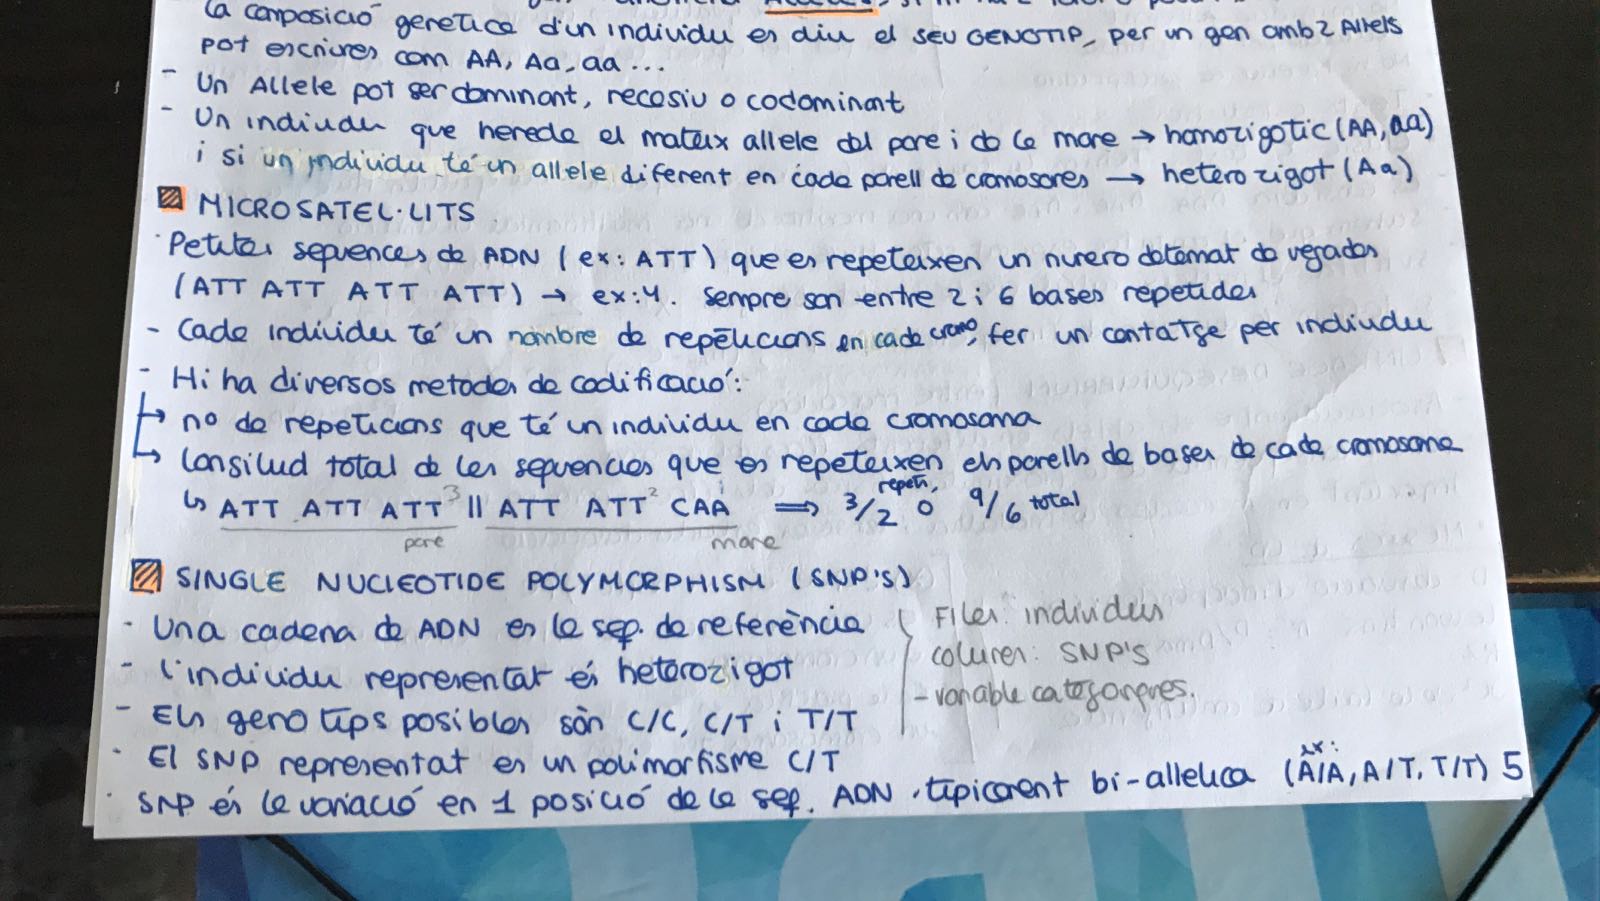 La composició genetica d'un individu es diu el SEU GENOTIP, per un gen amb 2 Allels
pot escriures com AA, Aa, aa...
- Un Allele pot ser dominant, recesiu o codominant
- Un individu que hereda el mateix allele del pare i de la mare → homozigotic (AA, aa)
i si un individu té un allele diferent en cada parell de cromosores → hetero zigot (Aa)
MICROSATEL·LITS
· Petites sequences de ADN (ex: ATT) que es repeteixen un numero determat de vegades
(ATT ATT ATT ATT) → ex: 4. Sempre son entre 2 i 6 bases repetides
- Cada individu té un nombre de repeticions en cada cromo, fer un contatge per individu
- Hi ha diversos metodes de codificació:
↳ nº de repeticions que té un individu en cada cromosoma
↳ Longitud total de les sequencies que es repeteixen els parells de bases de cada cromosoma
↳ ATT ATT ATT 3 || ATT ATT 2 CAA ⟹ 3/2 repeti. o 9/6 total
pare mare
SINGLE NUCLEOTIDE POLYMORPHISM (SNP'S)
- Una cadena de ADN es la seq. de referència
- L'individu representat és heterozigot
- Els genotips posibles són C/C, C/T i T/T
- El SNP representat es un polimorfisme C/T
· SNP és la variació en 1 posició de la seq. ADN. tipicament bi-allelica (ex: A/A, A/T, T/T) 5
Files: individus
columnes: SNP'S
- variable categoriques.